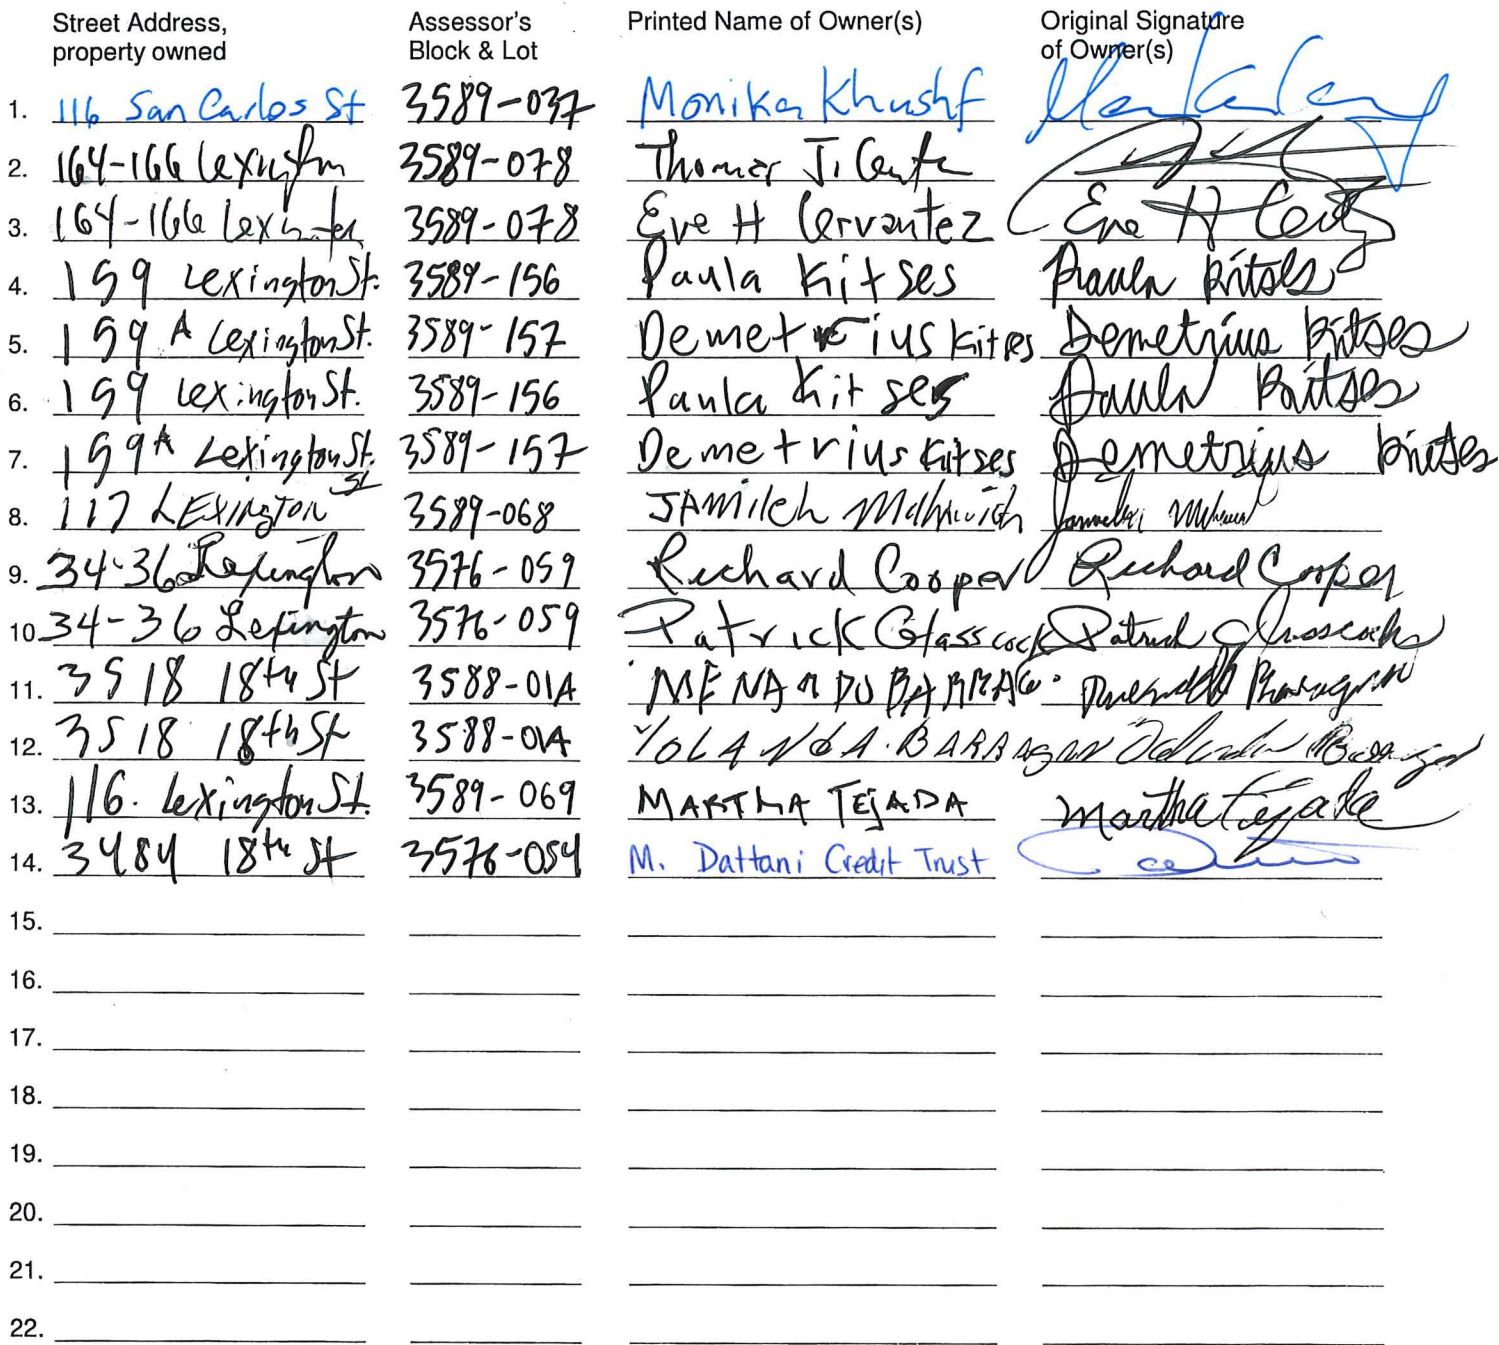 Street Address, property owned Assessor's Block & Lot Printed Name of Owner(s) Original Signature of Owner(s)
1. 116 San Carlos St 3589-037 Monika Khushf
2. 164-166 Lexington 3589-078 Thomas J.
3. 164-166 Lexington 3589-078 Eve H Cervantez Eve H
4. 159 Lexington St. 3589-156 Paula Kitses Paula Kitses
5. 159 A Lexington St. 3589-157 Demetrius Kitses Demetrius Kitses
6. 159 Lexington St. 3589-156 Paula Kitses Paula Kitses
7. 159 A Lexington St. 3589-157 Demetrius Kitses Demetrius Kitses
8. 117 LEXINGTON St 3589-068 JAMILEH
9. 34-36 Lexington 3576-059 Richard Cooper Richard Cooper
10. 34-36 Lexington 3576-059 Patrick Glasscock Patrick Glasscock
11. 3518 18th St 3588-01A MENANDO BARRAG
12. 3518 18th St 3588-01A YOLANDA A. BARRAGAN
13. 116. Lexington St. 3589-069 MARTHA TEJADA Martha Tejada
14. 3484 18th St 3576-054 M. Dattani Credit Trust
15.
16.
17.
18.
19.
20.
21.
22.